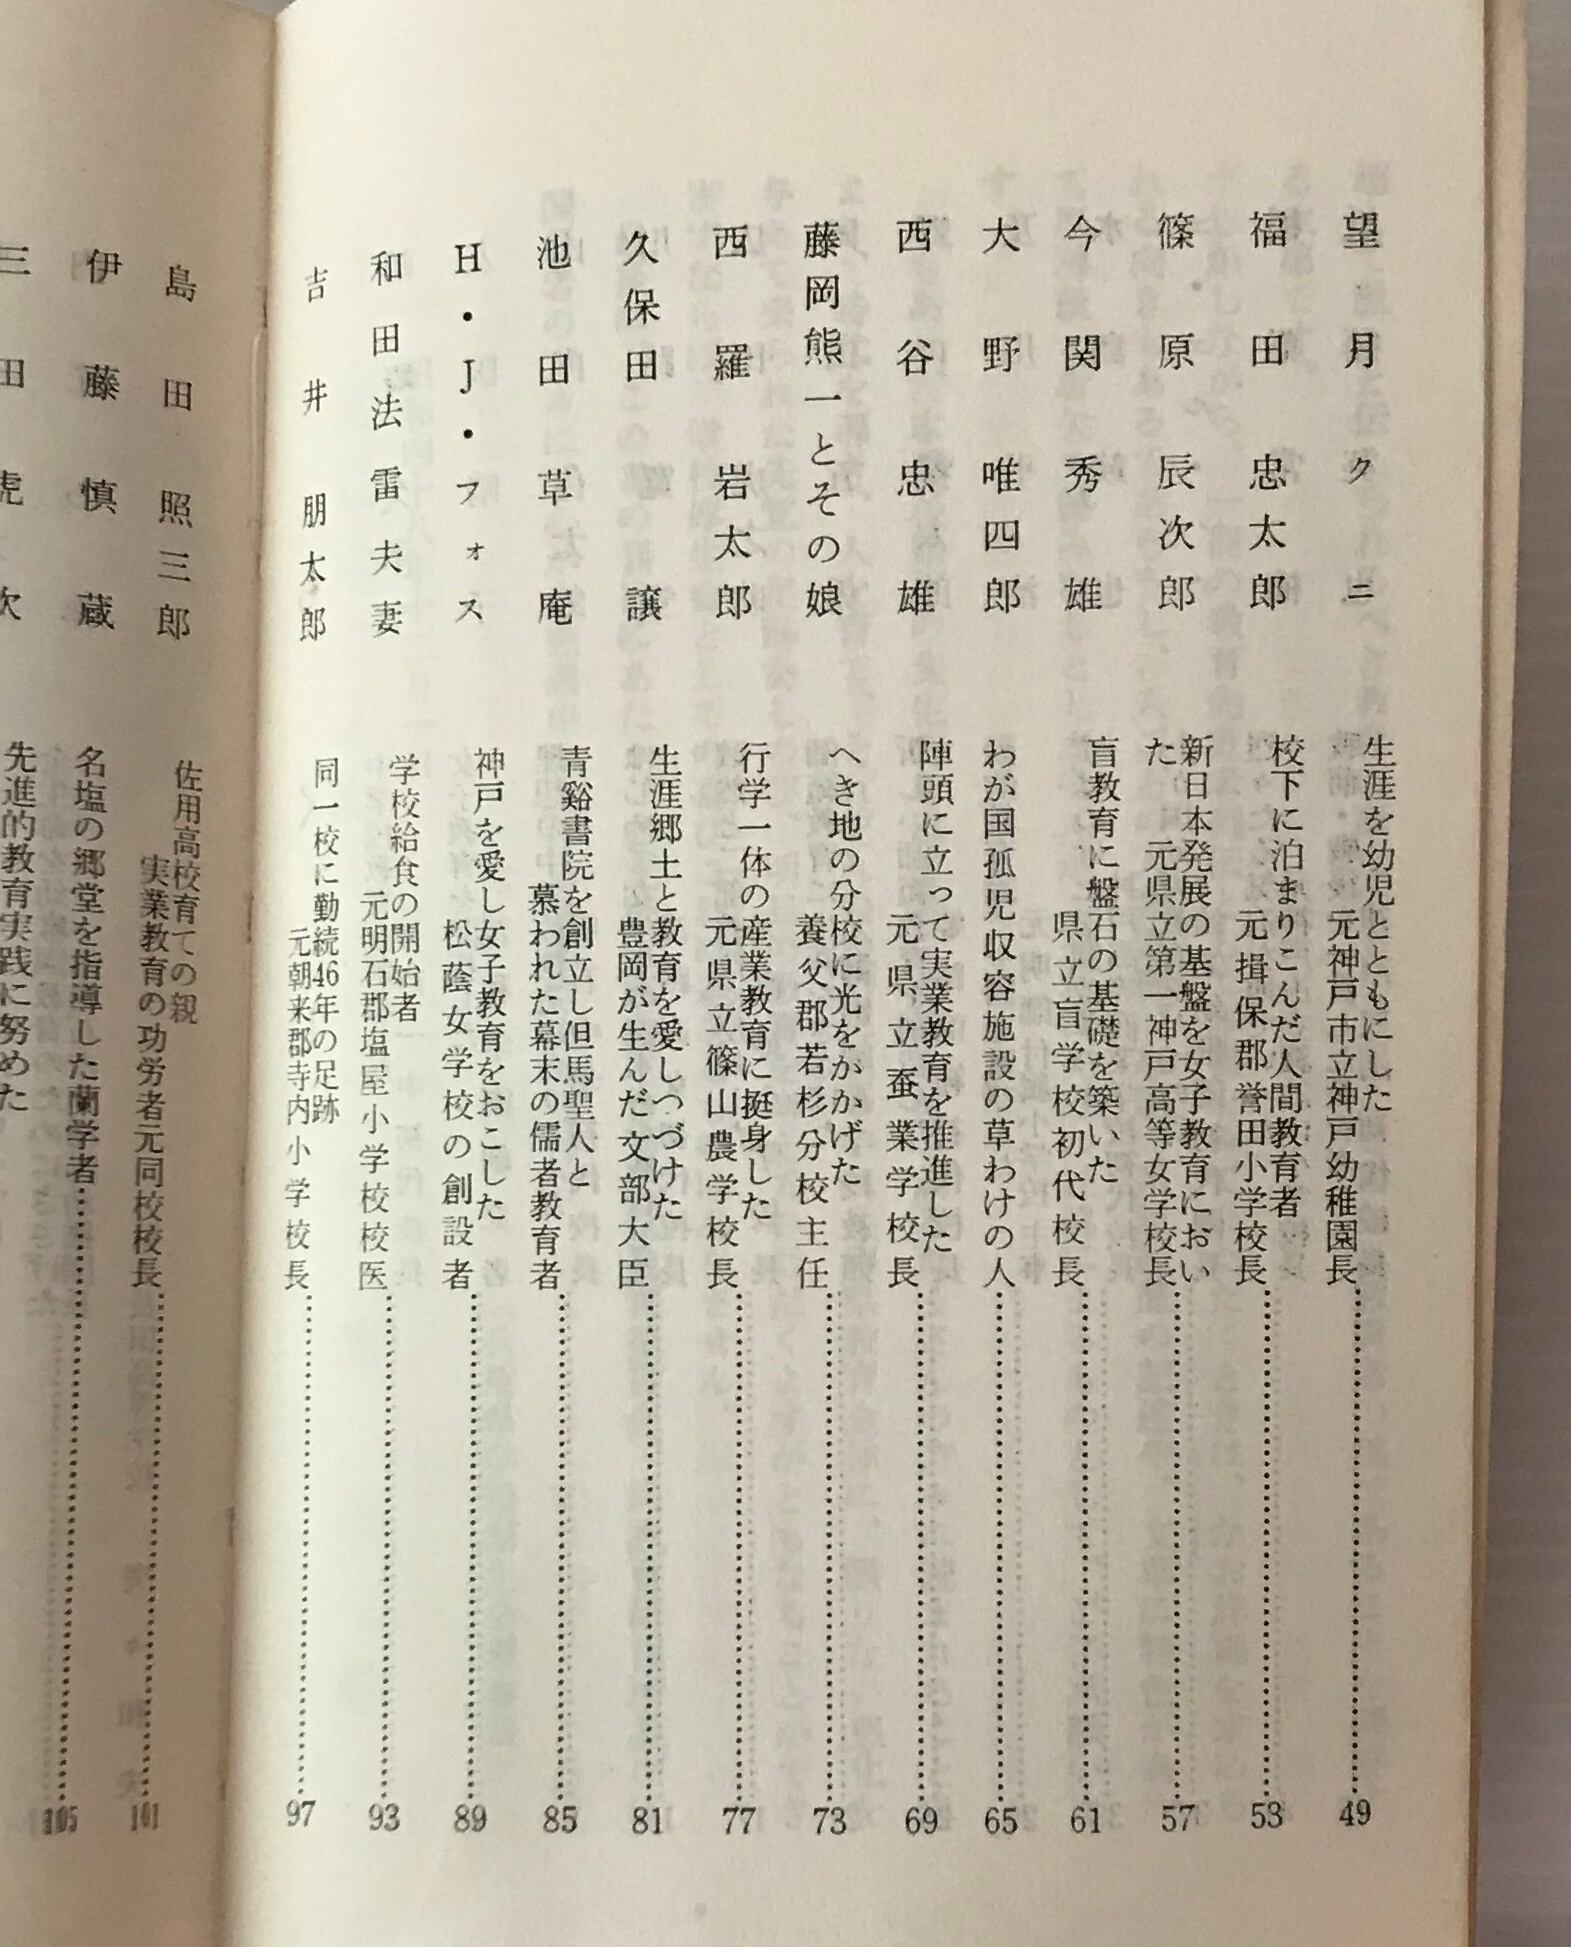 望月クニ
生涯を幼児とともにした
元神戸市立神戸幼稚園長……49
福田忠太郎
校下に泊まりこんだ人間教育者
元揖保郡誉田小学校長……53
篠原辰次郎
新日本発展の基盤を女子教育におい
た 元県立第一神戸高等女学校長……57
今関秀雄
盲教育に盤石の基礎を築いた
県立盲学校初代校長……61
大野唯四郎
わが国孤児収容施設の草わけの人……65
西谷忠雄
陣頭に立って実業教育を推進した
元県立蚕業学校長……69
藤岡熊一とその娘
へき地の分校に光をかかげた
養父郡若杉分校主任……73
西羅岩太郎
行学一体の産業教育に挺身した
元県立篠山農学校長……77
久保田譲
生涯郷土と教育を愛しつづけた
豊岡が生んだ文部大臣……81
池田草庵
青谿書院を創立し但馬聖人と
慕われた幕末の儒者教育者……85
H・J・フォス
神戸を愛し女子教育をおこした
松蔭女学校の創設者……89
和田法雷夫妻
学校給食の開始者
元明石郡塩屋小学校校医……93
吉井朋太郎
同一校に勤続46年の足跡
元朝来郡寺内小学校長……97
島田照三郎
佐用高校育ての親
実業教育の功労者元同校校長……101
伊藤慎蔵
名塩の郷堂を指導した蘭学者……105
三田虎次
先進的教育実践に努めた